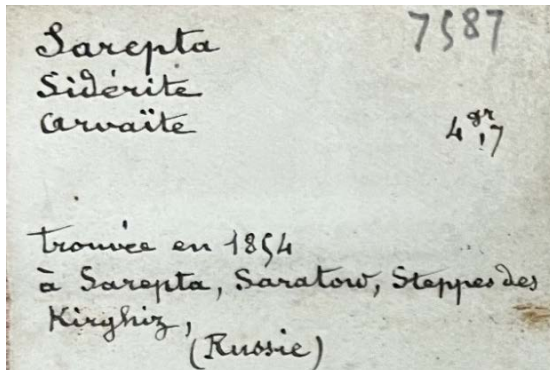 7587
Sarepta
Sidérite
Arvaïte
4gr,7
trouvée en 1854
à Sarepta, Saratow, Steppes des
Kirghiz,
(Russie)